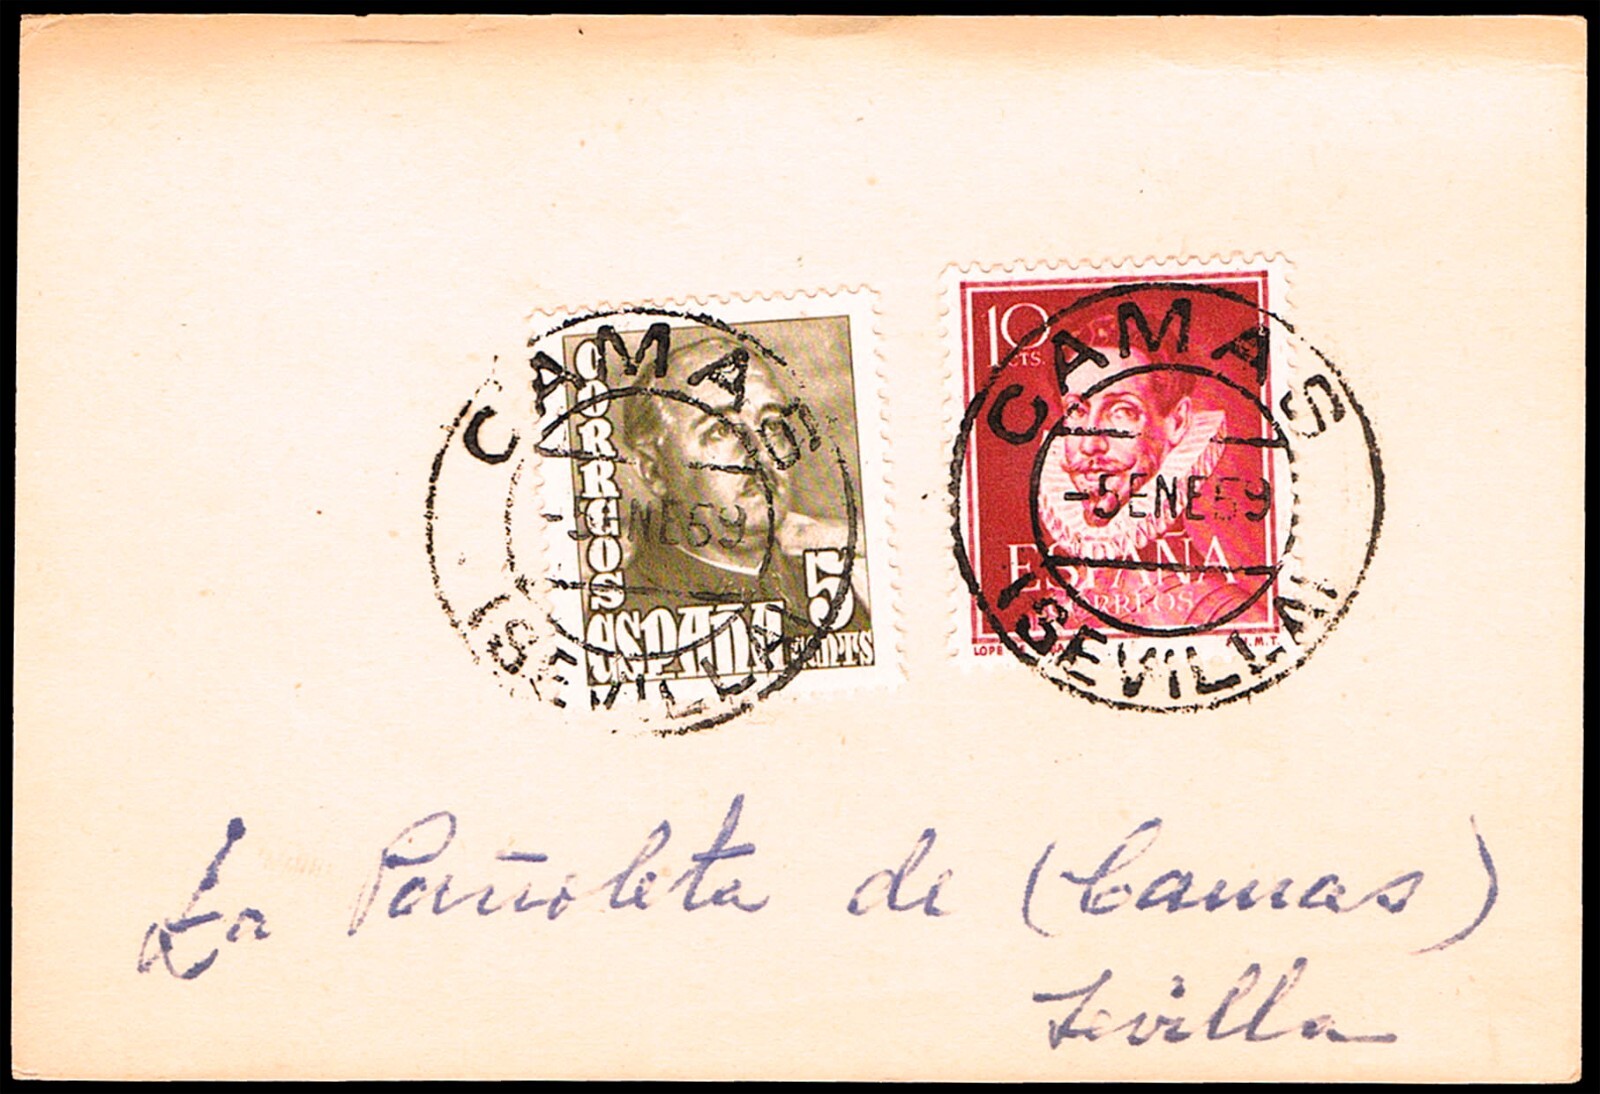 CORREOS
ESPAÑA
5
CTS
CAMAS
5 ENE 59
(SEVILLA)
10
CTS.
ESPAÑA
CORREOS
LOPE
CAMAS
-5 ENE 59
(SEVILLA)
La Pañoleta de (Camas)
Sevilla